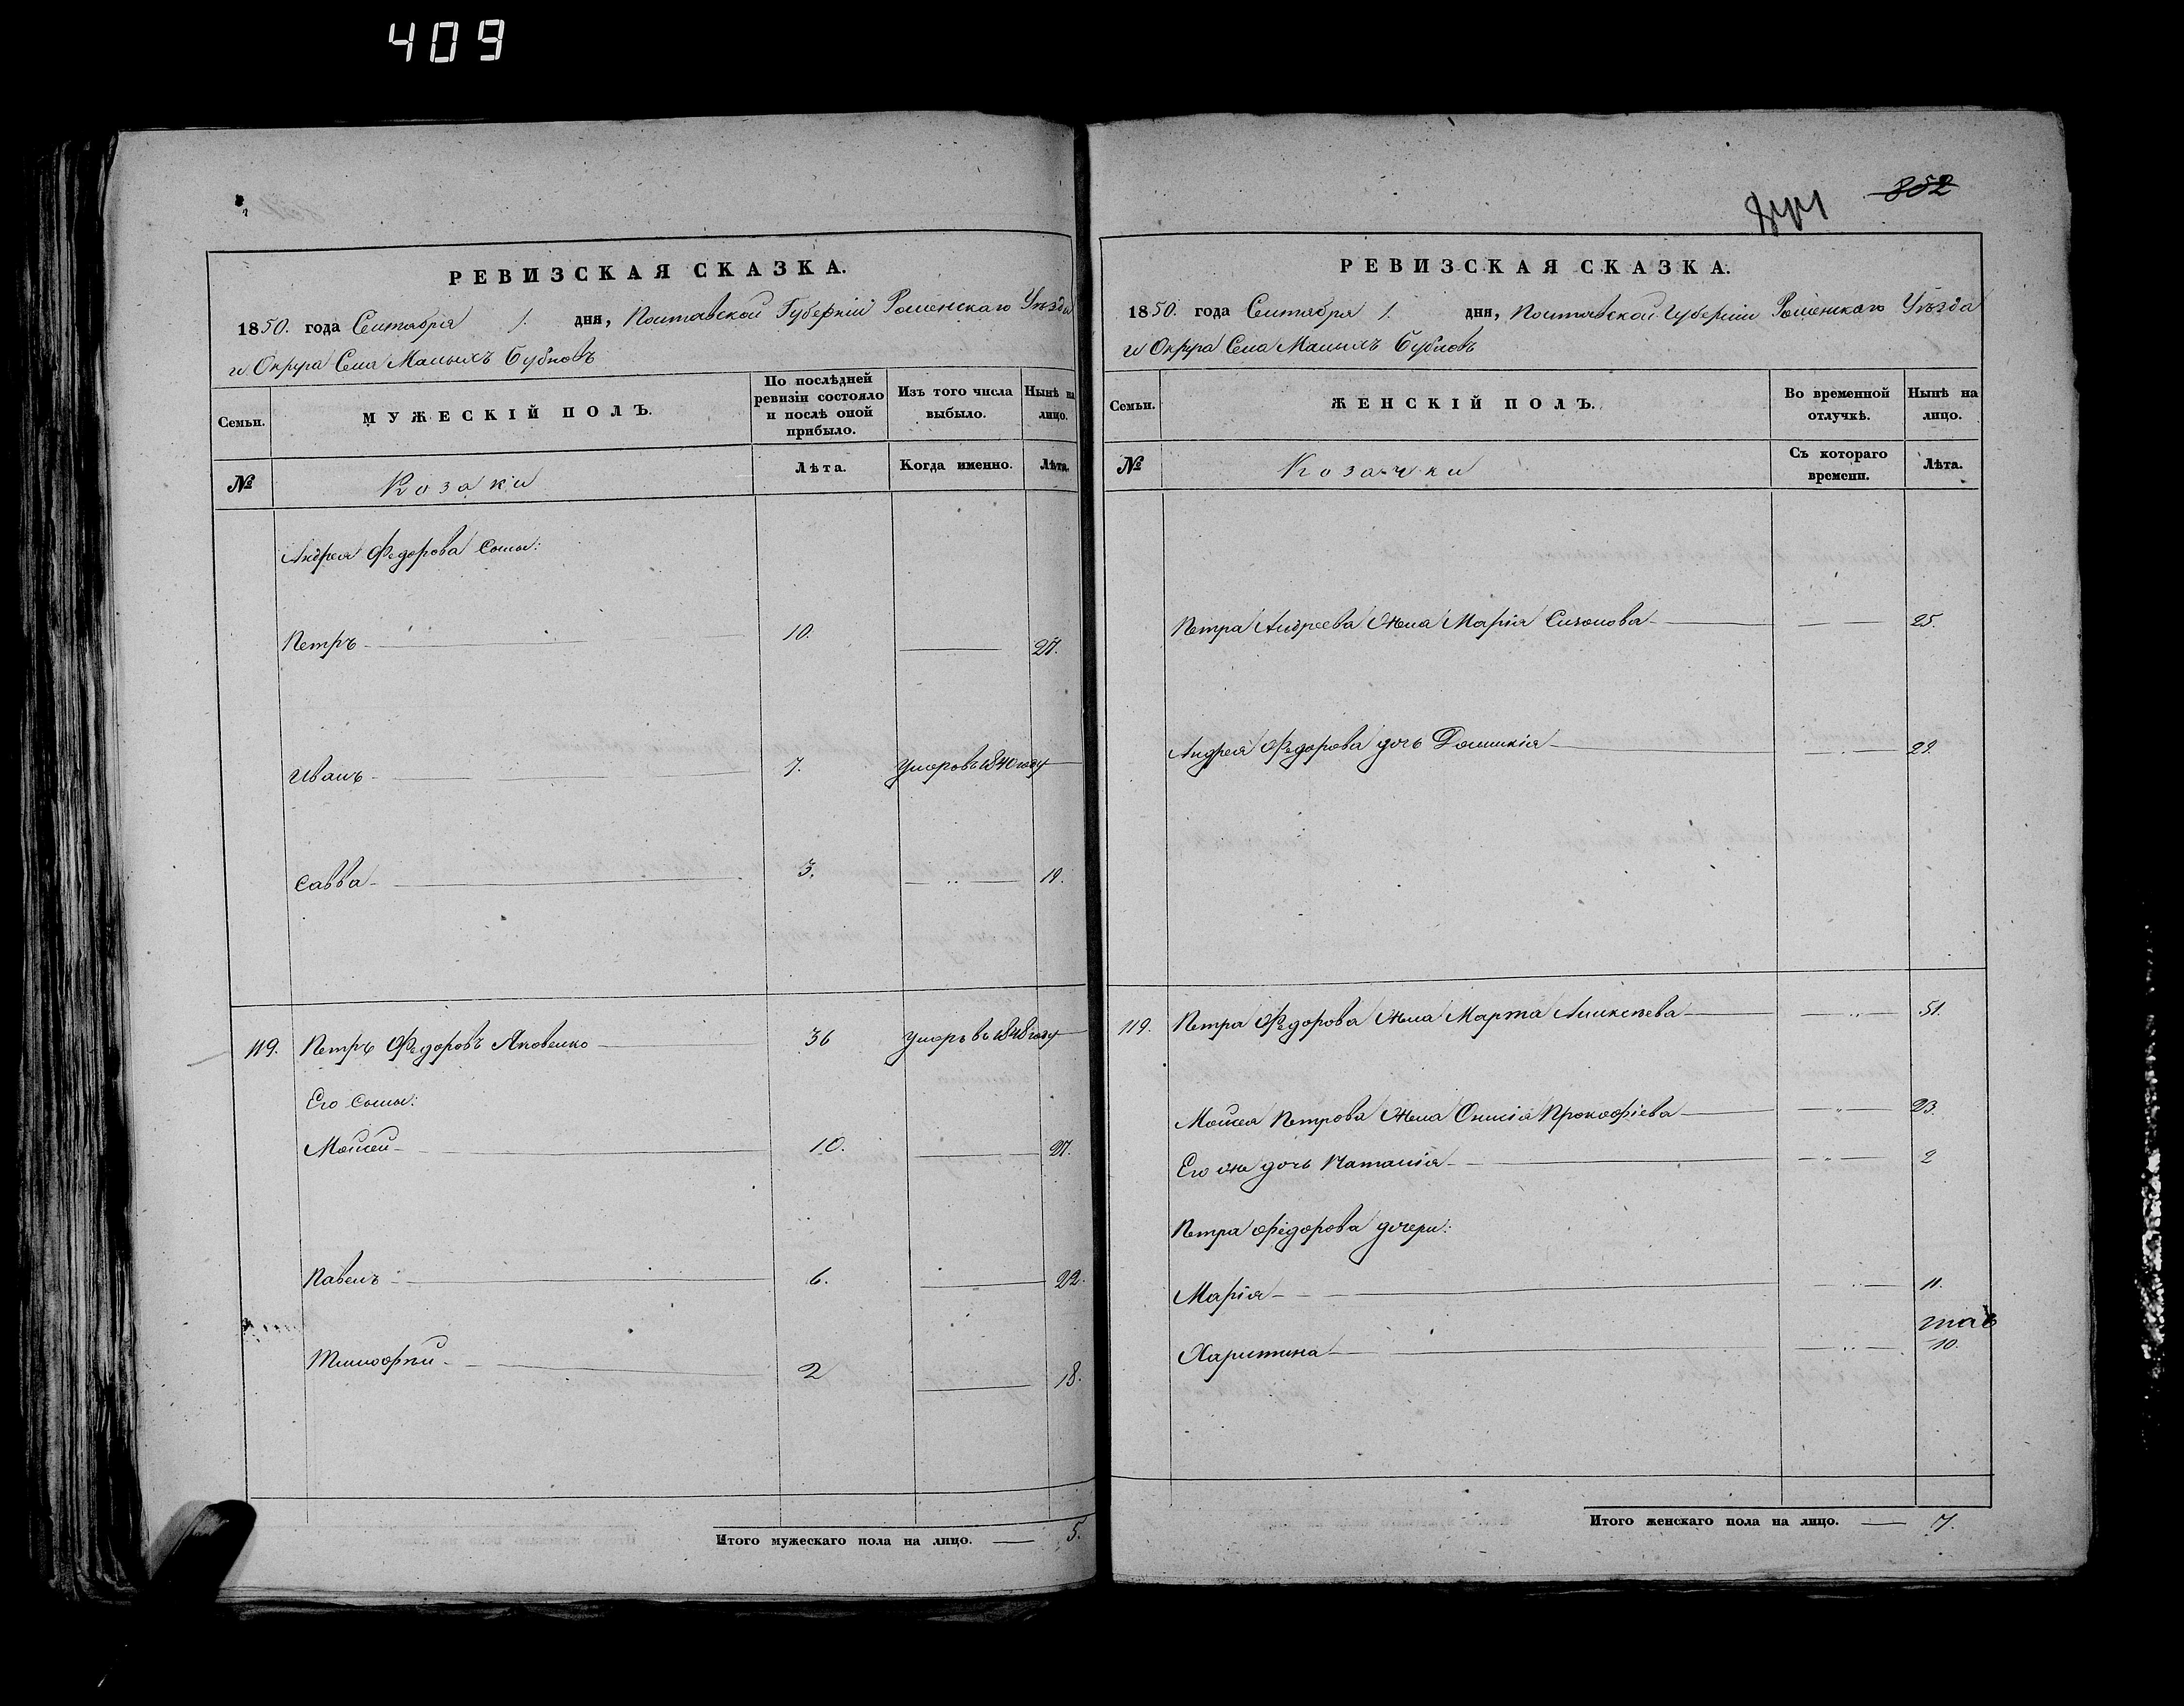 409
РЕВИЗСКАЯ СКАЗКА.
1850. года Сентября 1. дня, Полтавской Губерніи Роменскаго Уѣзда
и Округа Села Малыхъ Бубновъ
Семьи.
МУЖЕСКІЙ ПОЛЪ.
По послѣдней ревизіи состояло и послѣ оной прибыло.
Изъ того числа выбыло.
Нынѣ на лицо.
№
Козаки
Лѣта.
Когда именно.
Лѣта.
Андрея Федорова Сыны:
Петръ 10. 27.
Иванъ 7. умеръ въ 1840 году
Савва 3. 19.
119. Петръ Федоровъ Яковенко 36 умеръ въ 1848 году
Его Сыны:
Мойсей 10. 27.
Павелъ 6. 22.
Тимофей 2 18.
Итого мужескаго пола на лицо. 5.
852
РЕВИЗСКАЯ СКАЗКА.
1850. года Сентября 1. дня, Полтавской Губерніи Роменскаго Уѣзда
и Округа Села Малыхъ Бубновъ
Семьи.
ЖЕНСКІЙ ПОЛЪ.
Во временной отлучкѣ.
Нынѣ на лицо.
№
Козачки
Съ котораго времени.
Лѣта.
Петра Андреева жена Марія 25.
Андрея Федорова дочь Домникія
119. Петра Федорова жена Марта Алексѣева 51.
Мойсея Петрова жена Прокофіева 23.
Его же дочь Наталія 2
Петра Федорова дочери:
Марія 11.
Харитина 10.
Итого женскаго пола на лицо. 7.